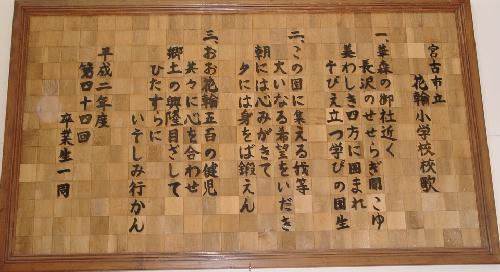 宮古市立
花輪小学校校歌
一、華森の御社近く
長沢のせせらぎ聞こゆ
美わしき四方に囲まれ
そびえ立つ学びの園生
二、この園に集える我等
大いなる希望をいだき
朝には心みがきて
夕には身をば鍛えん
三、おお花輪五百の健児
共々に心を合わせ
郷土の興隆目ざして
ひたすらに
いそしみ行かん
平成二年度
第四十四回
卒業生一同